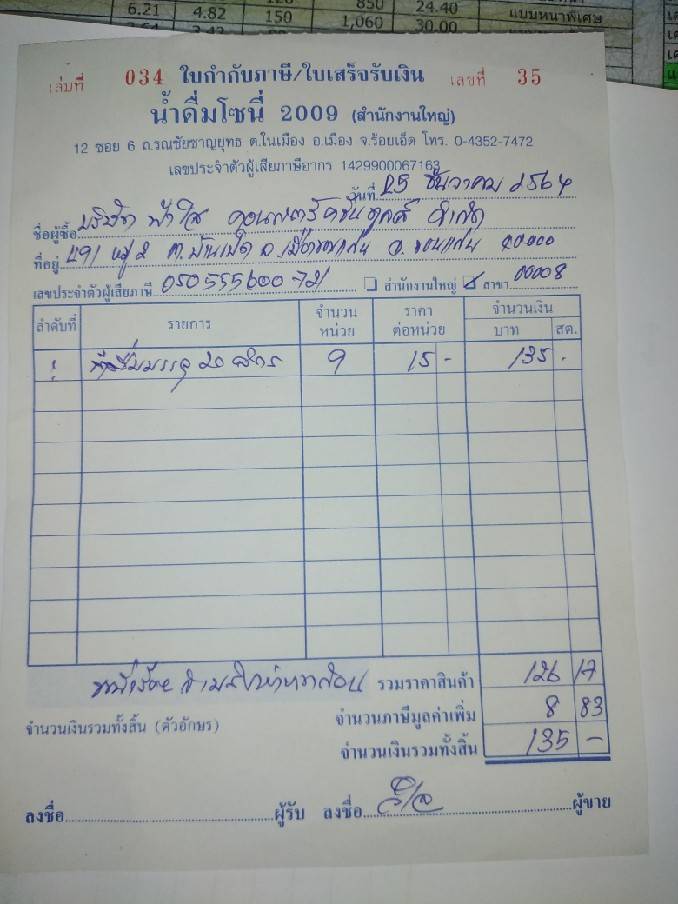 6.21 4.82 150 850 24.40 แบบหนาพิเศษ
1,060 30.00
เล่มที่ 034 ใบกำกับภาษี/ใบเสร็จรับเงิน เลขที่ 35
น้ำดื่มโซนี่ 2009 (สำนักงานใหญ่)
12 ซอย 6 ถ.รณชัยชาญยุทธ ต.ในเมือง อ.เมือง จ.ร้อยเอ็ด โทร. 0-4352-7472
เลขประจำตัวผู้เสียภาษีอากร 1429900067163
วันที่ 25 ธันวาคม 2564
ชื่อผู้ซื้อ บริษัท ฟ้าใส คอนสตรัคชั่น จำกัด
ที่อยู่ 491 หมู่ 2 ต.บ้านเป็ด อ.เมืองขอนแก่น จ.ขอนแก่น 40000
เลขประจำตัวผู้เสียภาษี สำนักงานใหญ่ สาขา 00008
ลำดับที่ รายการ จำนวนหน่วย ราคาต่อหน่วย จำนวนเงิน
บาท สต.
1 น้ำดื่มบรรจุ 20 ลิตร 9 15 - 135 -
รวมราคาสินค้า 126 17
จำนวนภาษีมูลค่าเพิ่ม 8 83
จำนวนเงินรวมทั้งสิ้น (ตัวอักษร) จำนวนเงินรวมทั้งสิ้น 135 -
ลงชื่อ ผู้รับ ลงชื่อ ผู้ขาย